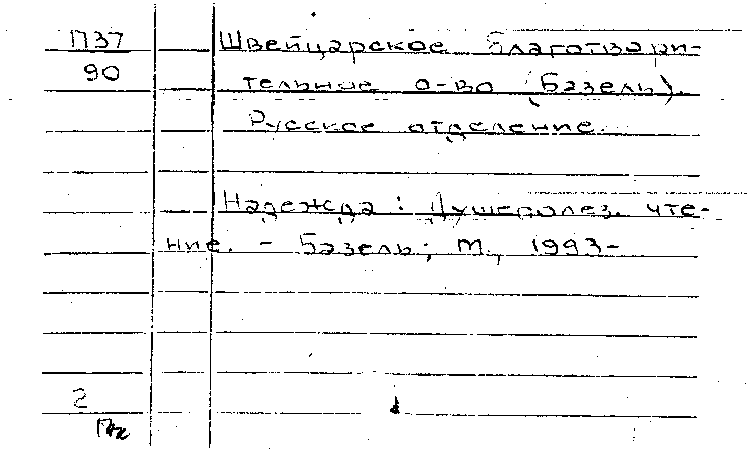 П37
90
Швейцарское благотвори-
тельное о-во (Базель).
Русское отделение.
Надежда: Душеполез. чте-
ние. - Базель; М., 1993-
2